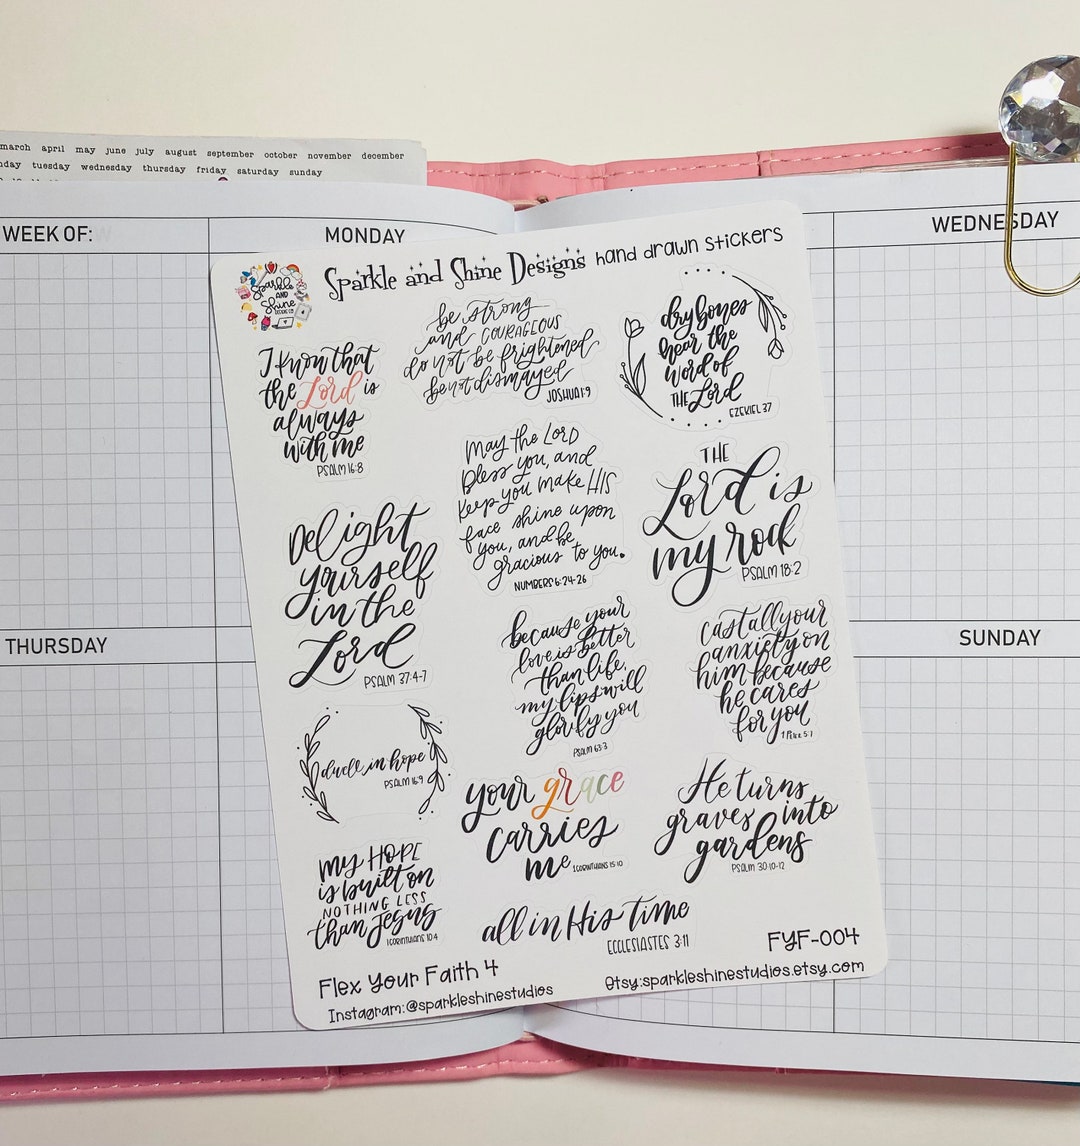 march april may june july august september october november december
tuesday wednesday thursday friday saturday sunday
WEEK OF:
MONDAY
WEDNESDAY
THURSDAY
SUNDAY
Sparkle
AND
Shine
Sparkle and Shine Designs hand drawn stickers
I know that
the Lord is
always
with me
PSALM 16:8
be strong
and COURAGEOUS
do not be frightened
be not dismayed
JOSHUA 1:9
dry bones
hear the
word of
THE Lord
EZEKIEL 37
Delight
yourself
in the
Lord
PSALM 37:4-7
May the LORD
Bless you, and
Keep you make HIS
face shine upon
you, and be
gracious to you.
NUMBERS 6:24-26
THE
Lord is
my rock
PSALM 18:2
because your
love is better
than life,
my lips will
glorify you
PSALM 63:3
cast all your
anxiety on
him because
he cares
for you
1 Peter 5:7
dwell in hope
PSALM 16:9
your grace
carries
me
1 CORINTHIANS 15:10
He turns
graves into
gardens
PSALM 30:10-12
MY HOPE
is built on
NOTHING LESS
than Jesus
1 CORINTHIANS 10:4
all in His Time
ECCLESIASTES 3:11
Flex Your Faith 4
FYF-004
Instagram:@sparkleshinestudios
Etsy:sparkleshinestudios.etsy.com